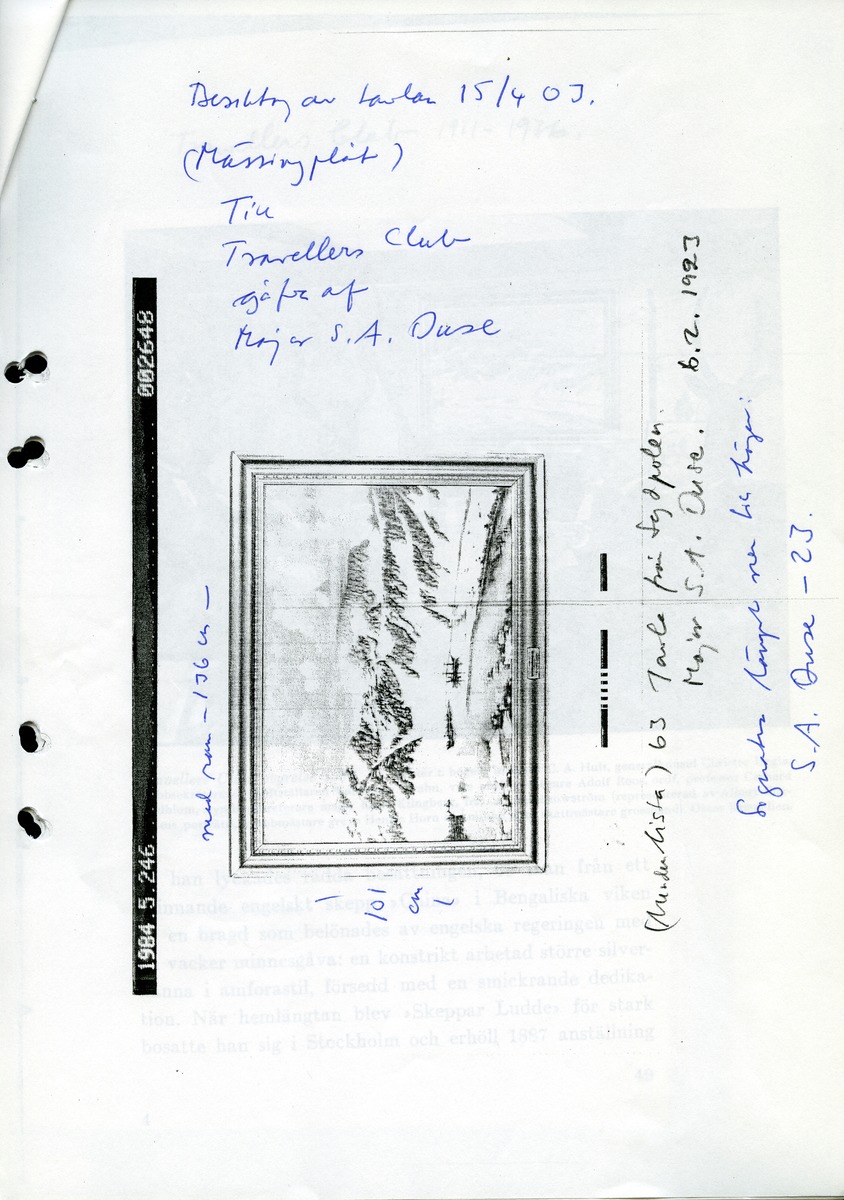 Besiktng av tavlan 15/4 03.
(Mässingplåt)
Till
Travellers Club
gåfva af
Major S.A. Duse
002648
1984.5.246.
med ram – 136 cm –
101
cm
63 Tavla från Sydpolen.
Major S.A. Duse. 6.2.1923
Signatur längst ner till höger:
S.A. Duse – 23.
han lyckades rädda från ett
engelskt skepp i Bengaliska viken
en bragd som belönades av engelska regeringen med
vacker minnesgåva: en konstrikt arbetad större silver-
kanna i amforastil, försedd med en smickrande dedika-
tion. När hemlängtan blev »Skeppar Ludde» för stark
bosatte han sig i Stockholm och erhöll 1887 anställning
49
4